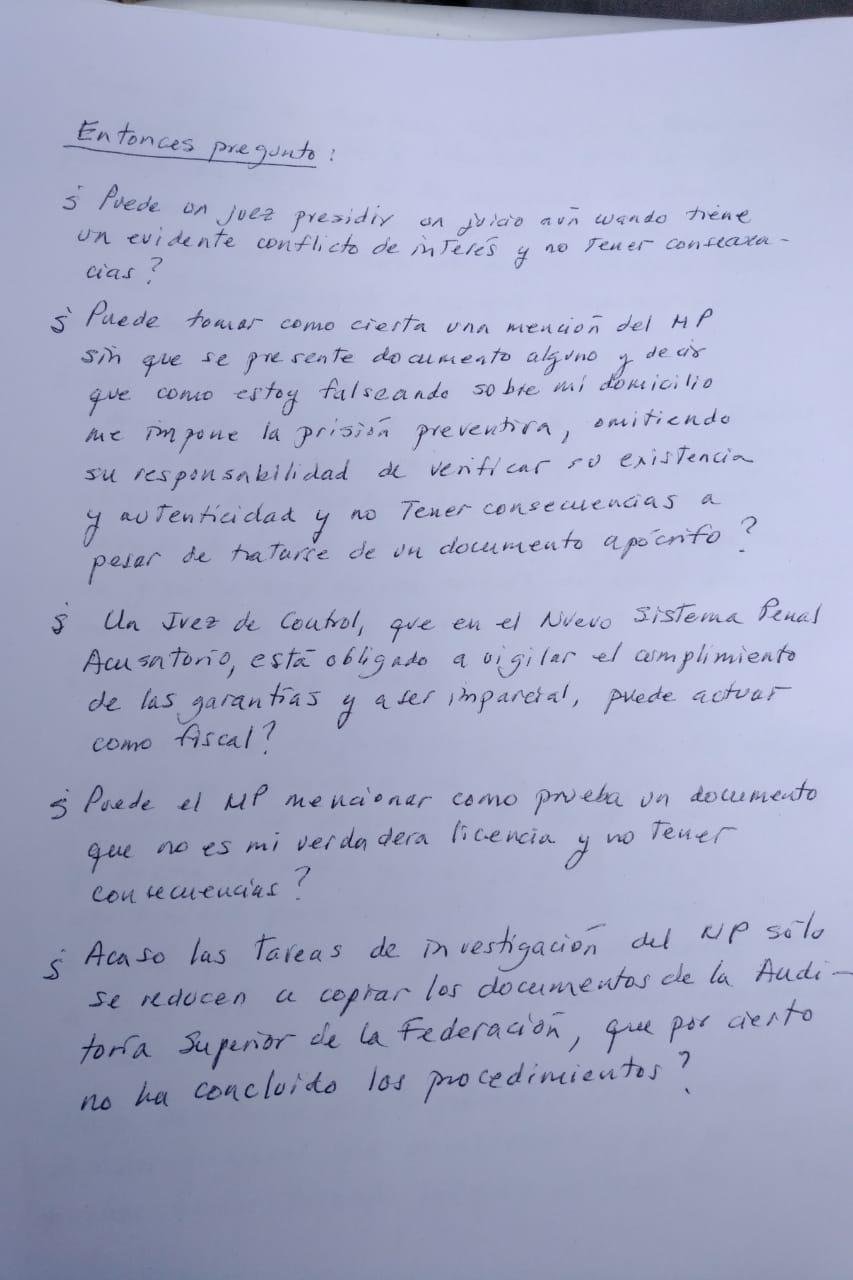 Entonces pregunto:
¿Puede un juez presidir un juicio aún cuando tiene
un evidente conflicto de interés y no tener consecuen-
cias?
¿Puede tomar como cierta una mención del MP
sin que se presente documento alguno y decir
que como estoy falseando sobre mi domicilio
me impone la prisión preventiva, omitiendo
su responsabilidad de verificar su existencia
y autenticidad y no tener consecuencias a
pesar de tratarse de un documento apócrifo?
¿Un Juez de Control, que en el Nuevo Sistema Penal
Acusatorio, está obligado a vigilar el cumplimiento
de las garantías y a ser imparcial, puede actuar
como fiscal?
¿Puede el MP mencionar como prueba un documento
que no es mi verdadera licencia y no tener
consecuencias?
¿Acaso las tareas de investigación del MP sólo
se reducen a copiar los documentos de la Audi-
toría Superior de la Federación, que por cierto
no ha concluido los procedimientos?